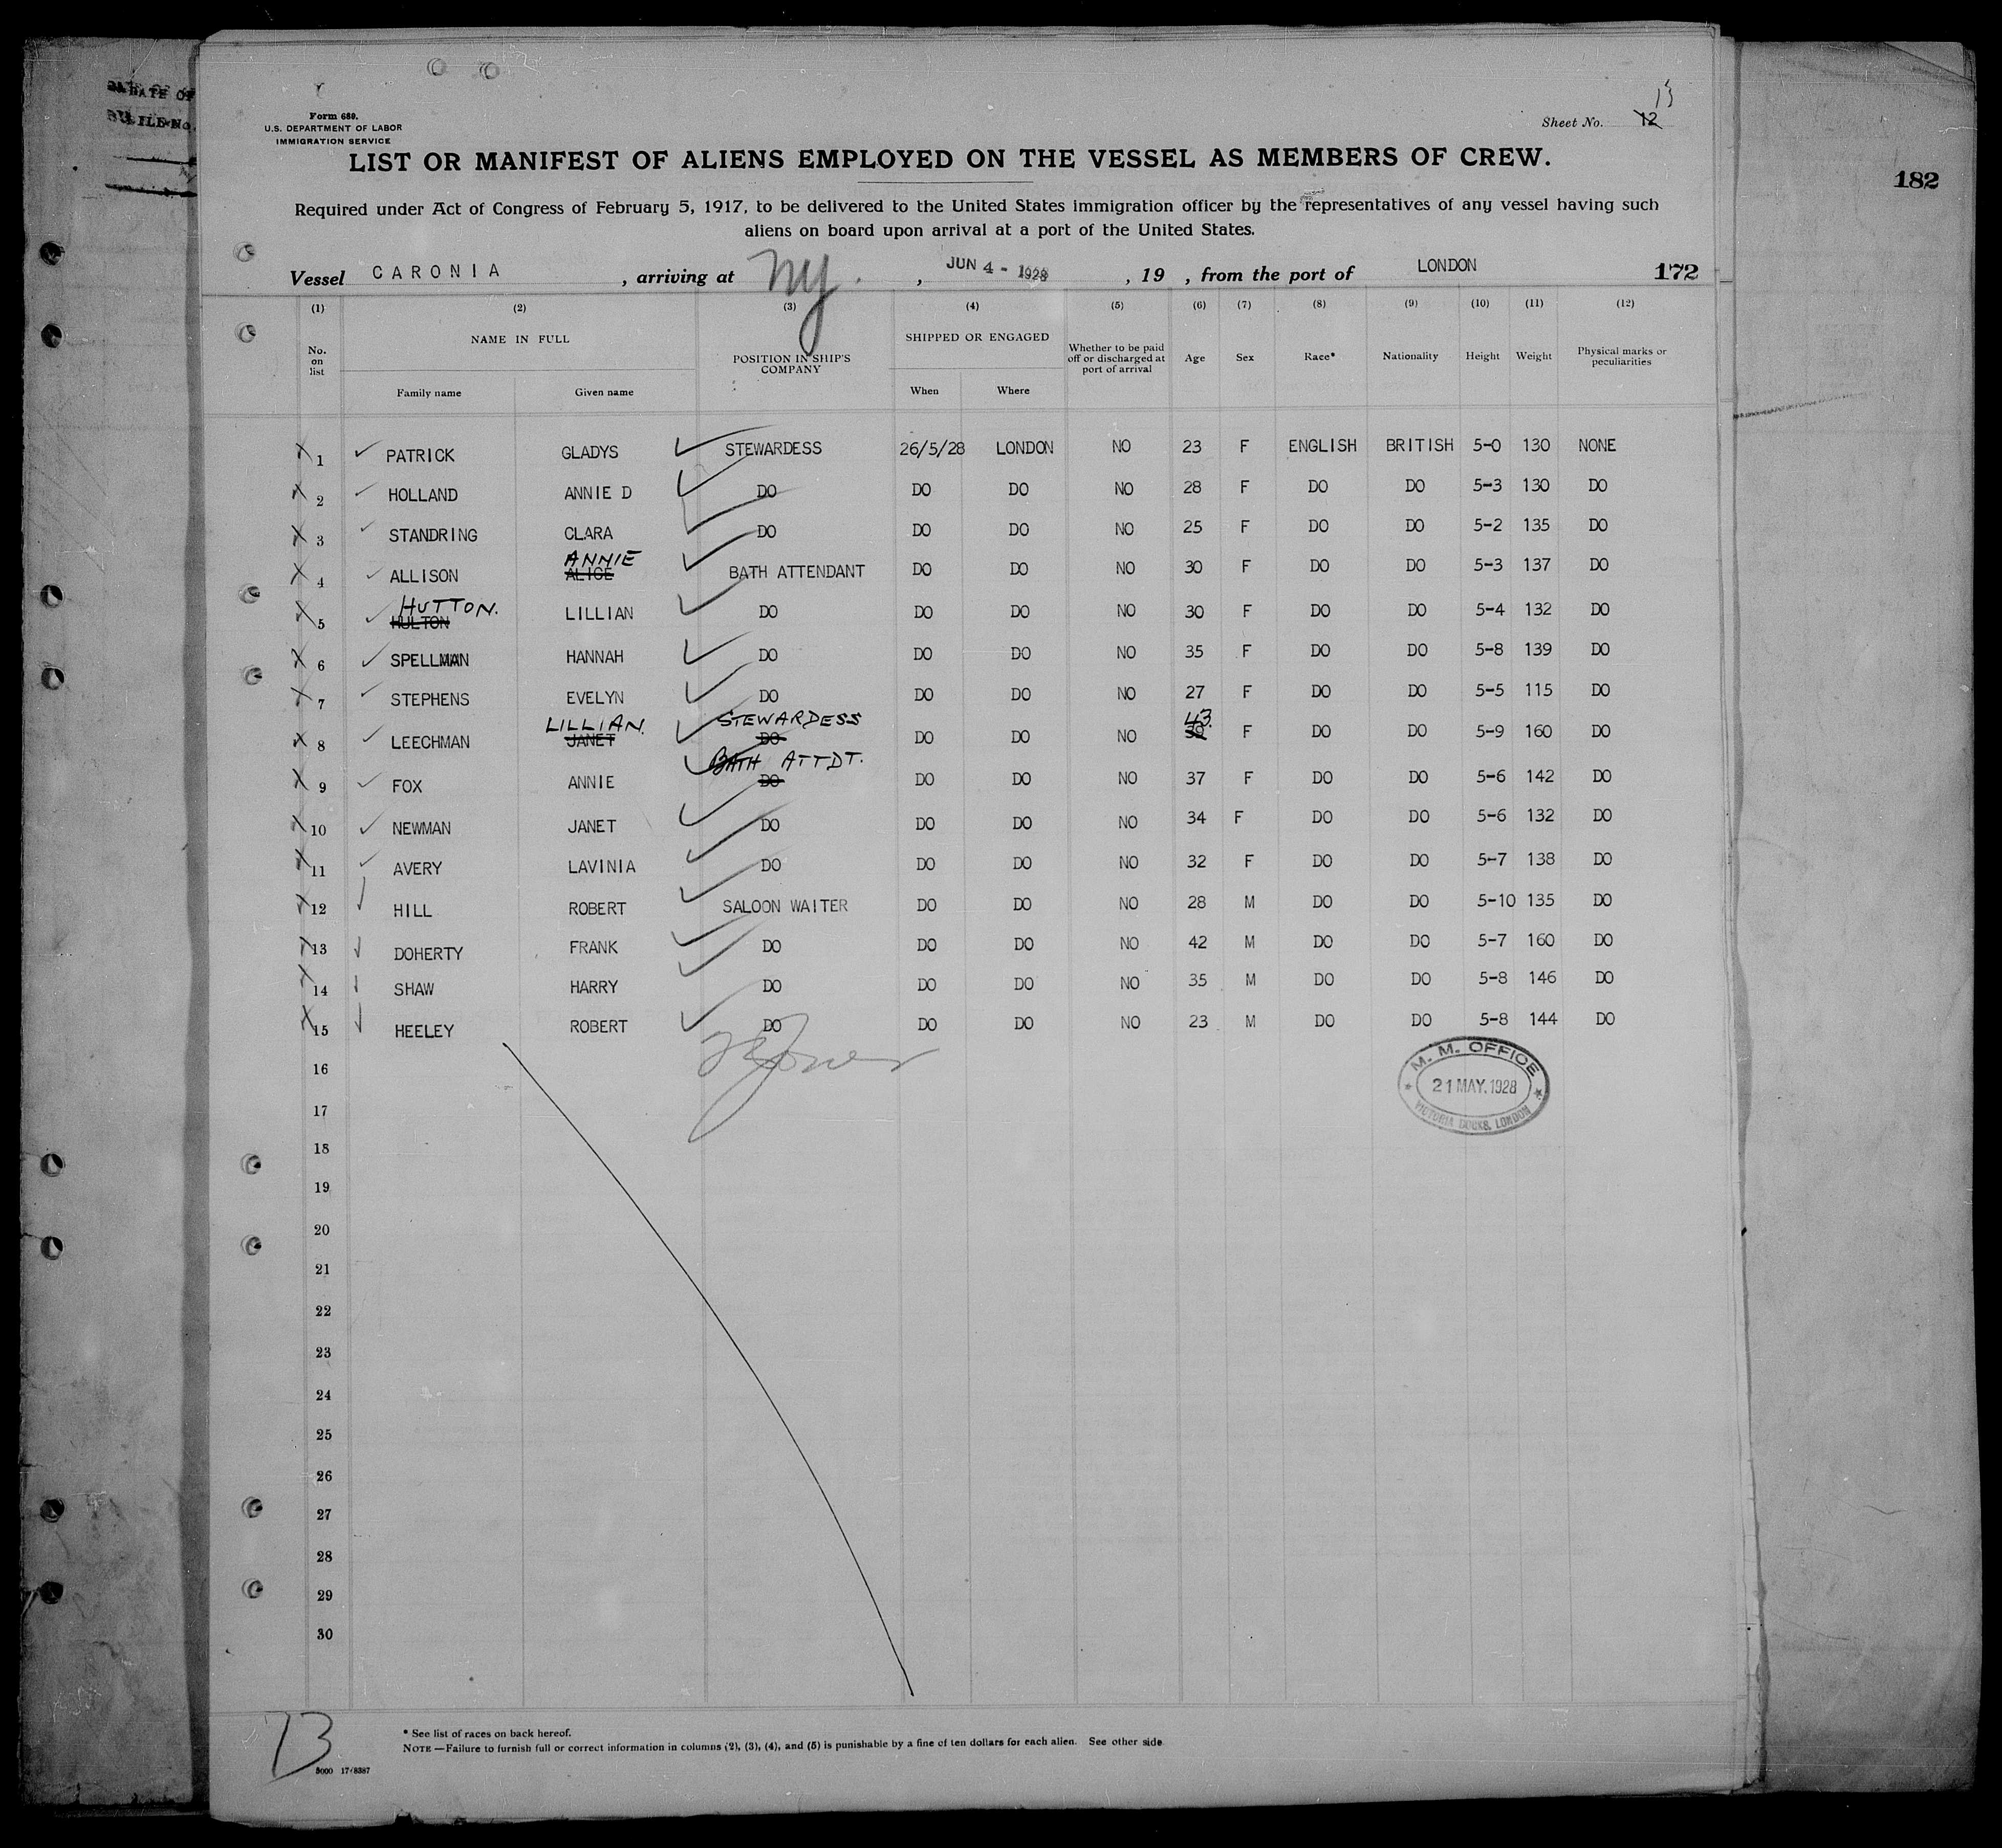 DATE OF
FILE No.
182
Form 689.
U.S. DEPARTMENT OF LABOR
IMMIGRATION SERVICE
13
Sheet No. 12
LIST OR MANIFEST OF ALIENS EMPLOYED ON THE VESSEL AS MEMBERS OF CREW.
Required under Act of Congress of February 5, 1917, to be delivered to the United States immigration officer by the representatives of any vessel having such
aliens on board upon arrival at a port of the United States.
Vessel CARONIA , arriving at NY. , JUN 4 - 1928 , 19 , from the port of LONDON 172
(1) (2) (3) (4) (5) (6) (7) (8) (9) (10) (11) (12)
No. on list NAME IN FULL POSITION IN SHIP'S COMPANY SHIPPED OR ENGAGED Whether to be paid off or discharged at port of arrival Age Sex Race* Nationality Height Weight Physical marks or peculiarities
Family name Given name When Where
1 PATRICK GLADYS STEWARDESS 26/5/28 LONDON NO 23 F ENGLISH BRITISH 5-0 130 NONE
2 HOLLAND ANNIE D DO DO DO NO 28 F DO DO 5-3 130 DO
3 STANDRING CLARA DO DO DO NO 25 F DO DO 5-2 135 DO
ANNIE
4 ALLISON ALICE BATH ATTENDANT DO DO NO 30 F DO DO 5-3 137 DO
HUTTON.
5 HULTON LILLIAN DO DO DO NO 30 F DO DO 5-4 132 DO
6 SPELLMAN HANNAH DO DO DO NO 35 F DO DO 5-8 139 DO
7 STEPHENS EVELYN DO DO DO NO 27 F DO DO 5-5 115 DO
LILLIAN. STEWARDESS 43.
8 LEECHMAN JANET DO DO DO NO 39 F DO DO 5-9 160 DO
BATH ATTDT.
9 FOX ANNIE DO DO DO NO 37 F DO DO 5-6 142 DO
10 NEWMAN JANET DO DO DO NO 34 F DO DO 5-6 132 DO
11 AVERY LAVINIA DO DO DO NO 32 F DO DO 5-7 138 DO
12 HILL ROBERT SALOON WAITER DO DO NO 28 M DO DO 5-10 135 DO
13 DOHERTY FRANK DO DO DO NO 42 M DO DO 5-7 160 DO
14 SHAW HARRY DO DO DO NO 35 M DO DO 5-8 146 DO
15 HEELEY ROBERT DO DO DO NO 23 M DO DO 5-8 144 DO
16
17
18
19
20
21
22
23
24
25
26
27
28
29
30
M. M. OFFICE
21 MAY. 1928
VICTORIA DOCKS, LONDON
73
* See list of races on back hereof.
NOTE—Failure to furnish full or correct information in columns (2), (3), (4), and (5) is punishable by a fine of ten dollars for each alien. See other side
5000 17/8387